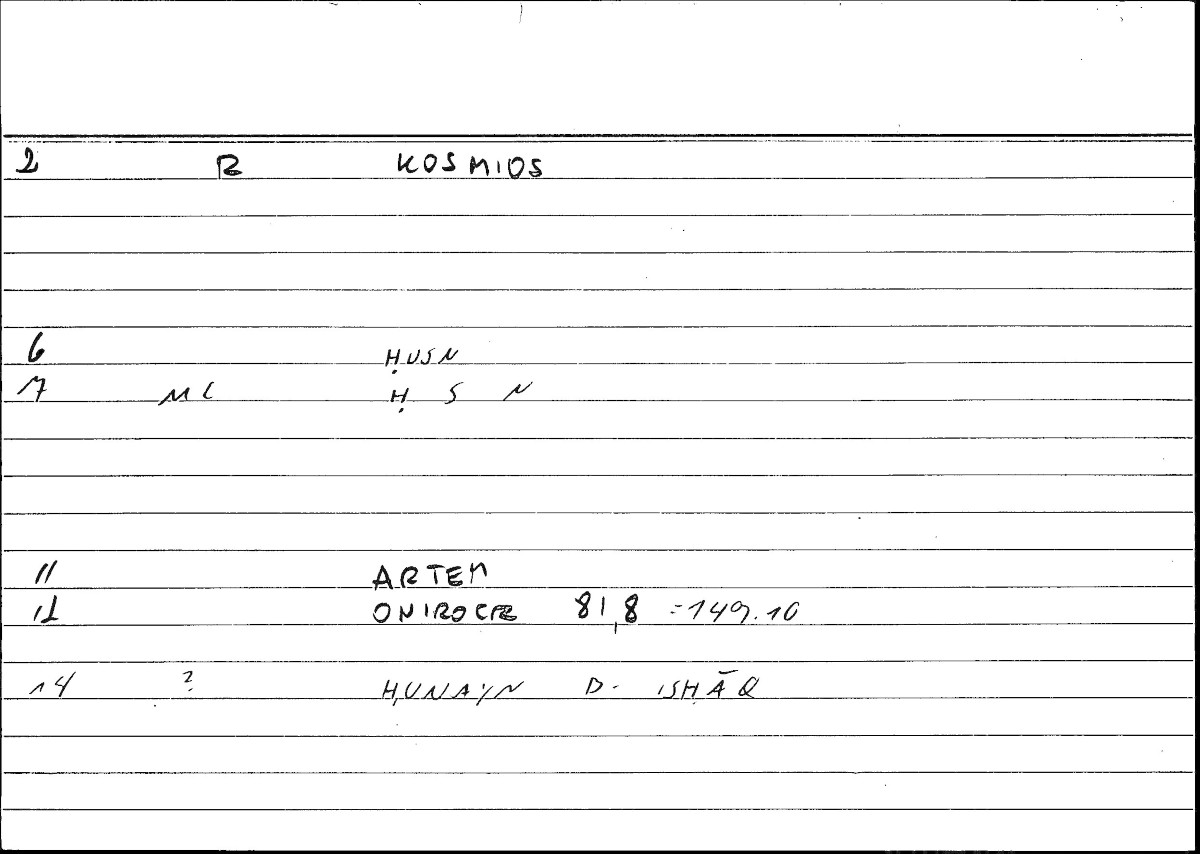 2 B KOSMIOS
6 ḤUSN
7 ML Ḥ S N
11 ARTEM
12 ONIROCR 81,8 =149.10
14 ? ḤUNAYN B. ISḤĀQ